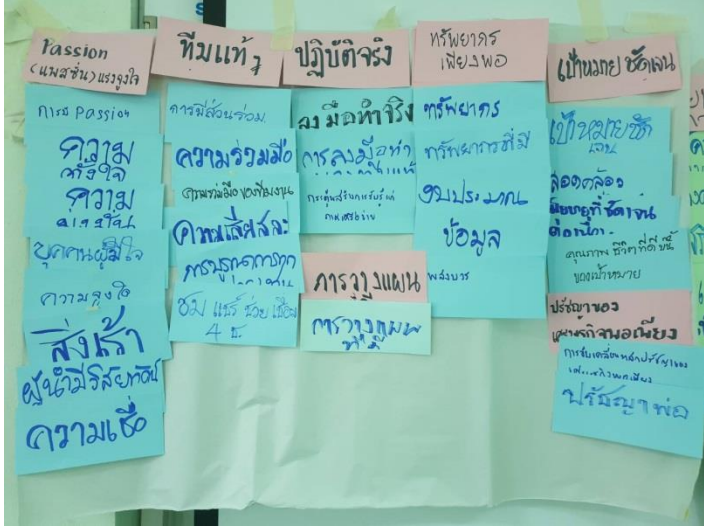 Passion
(แพสชั่น) แรงจูงใจ
การมี Passion
ความ
ตั้งใจ
ความ
มุ่งมั่น
บุคคลผู้มีใจ
ความจูงใจ
สิ่งเร้า
ผู้นำมีวิสัยทัศน์
ความเชื่อ
ทีมแท้ๆ
การมีส่วนร่วม
ความร่วมมือ
ความร่วมมือของทีมงาน
ความเสียสละ
การบูรณาการทุก
ชม แชร์ ช่วย เชื่อม
4 ช.
ปฏิบัติจริง
ลงมือทำจริง
การลงมือทำ
การวางแผน
การวางแผน
ที่ดี
ทรัพยากร
เพียงพอ
ทรัพยากร
ทรัพยากรที่มี
งบประมาณ
ข้อมูล
เป้าหมายชัดเจน
เป้าหมายชัด
เจน
สอดคล้อง
นโยบายที่ชัดเจน
คุณภาพชีวิตที่ดีขึ้น
ของเป้าหมาย
ปรัชญาของ
เศรษฐกิจพอเพียง
การขับเคลื่อนหลักปรัชญาของ
เศรษฐกิจพอเพียง
ปรัชญาพ่อ